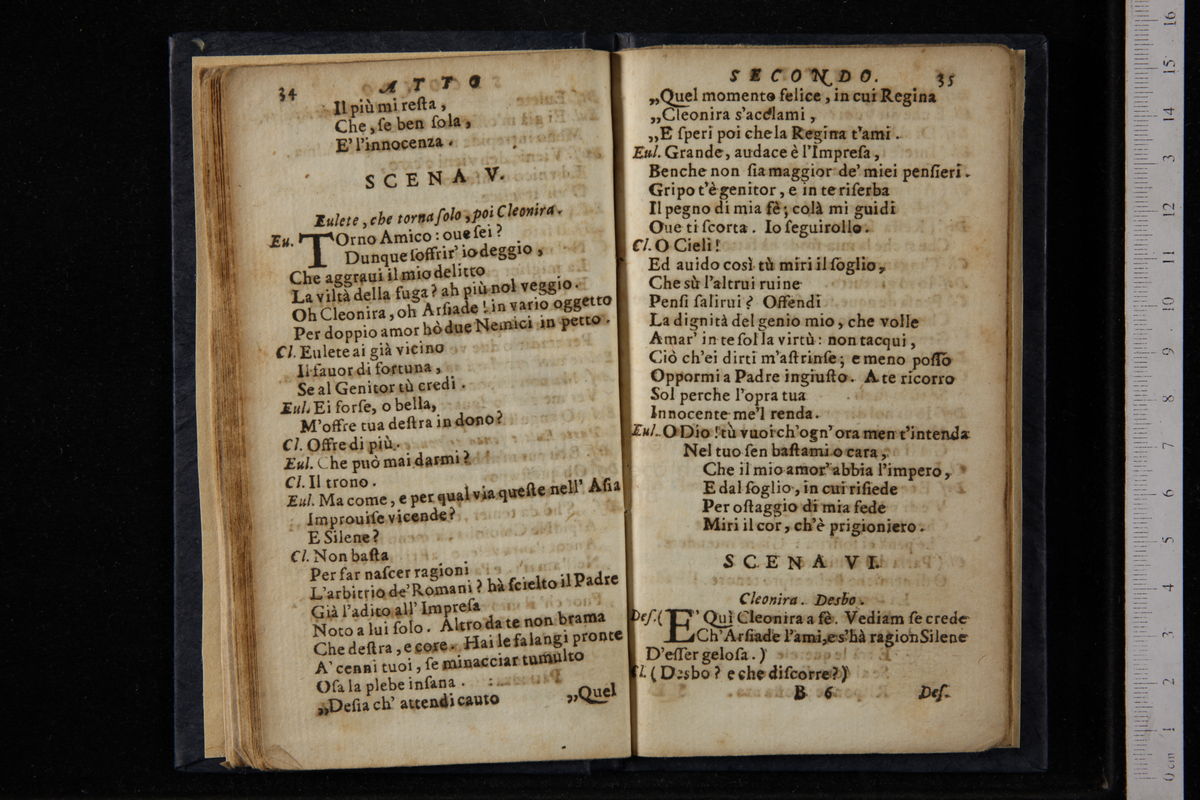 34
ATTO
Il più mi reſta,
Che, ſe ben ſola,
E' l'innocenza.
SCENA V.
Eulete, che torna ſolo, poi Cleonira.
Eu. TOrno Amico: oue ſei?
Dunque ſoffrir' io deggio,
Che aggraui il mio delitto
La viltà della fuga? ah più nol veggio.
Oh Cleonira, oh Arſiade! in vario oggetto
Per doppio amor hò due Nemici in petto.
Cl. Eulete ai già vicino
Il fauor di fortuna,
Se al Genitor tù credi.
Eul. Ei forſe, o bella,
M'offre tua deſtra in dono?
Cl. Offre di più.
Eul. Che può mai darmi?
Cl. Il trono.
Eul. Ma come, e per qual via queſte nell' Aſia
Improuiſe vicende?
E Silene?
Cl. Non baſta
Per far naſcer ragioni
L'arbitrio de' Romani? hà ſcielto il Padre
Già l'adito all' Impreſa
Noto a lui ſolo. Altro da te non brama
Che deſtra, e core. Hai le falangi pronte
A' cenni tuoi, ſe minacciar tumulto
Oſa la plebe inſana.
„Deſia ch' attendi cauto
„Quel
SECONDO.
35
„Quel momento felice, in cui Regina
„Cleonira s'acclami,
„E ſperi poi che la Regina t'ami.
Eul. Grande, audace è l'Impreſa,
Benche non ſia maggior de' miei penſieri.
Gripo t'è genitor, e in te riſerba
Il pegno di mia fè; colà mi guidi
Oue ti ſcorta. Io ſeguirollo.
Cl. O Cieli!
Ed auido così tù miri il ſoglio,
Che sù l'altrui ruine
Penſi ſalirui? Offendi
La dignità del genio mio, che volle
Amar' in te ſol la virtù: non tacqui,
Ciò ch'ei dirti m'aſtrinſe; e meno poſſo
Oppormi a Padre ingiuſto. A te ricorro
Sol perche l'opra tua
Innocente me'l renda.
Eul. O Dio! tù vuoi ch'ogn' ora men t'intenda
Nel tuo ſen baſtami o cara,
Che il mio amor' abbia l'impero,
E dal ſoglio, in cui riſiede
Per oſtaggio di mia fede
Miri il cor, ch'è prigioniero.
SCENA VI.
Cleonira. Desbo.
Deſ. (E' Quì Cleonira a fè. Vediam ſe crede
Ch' Arſiade l'ami, e s'hà ragion Silene
D'eſſer geloſa.)
Cl. (Desbo? e che diſcorre?)
B 6
Deſ.